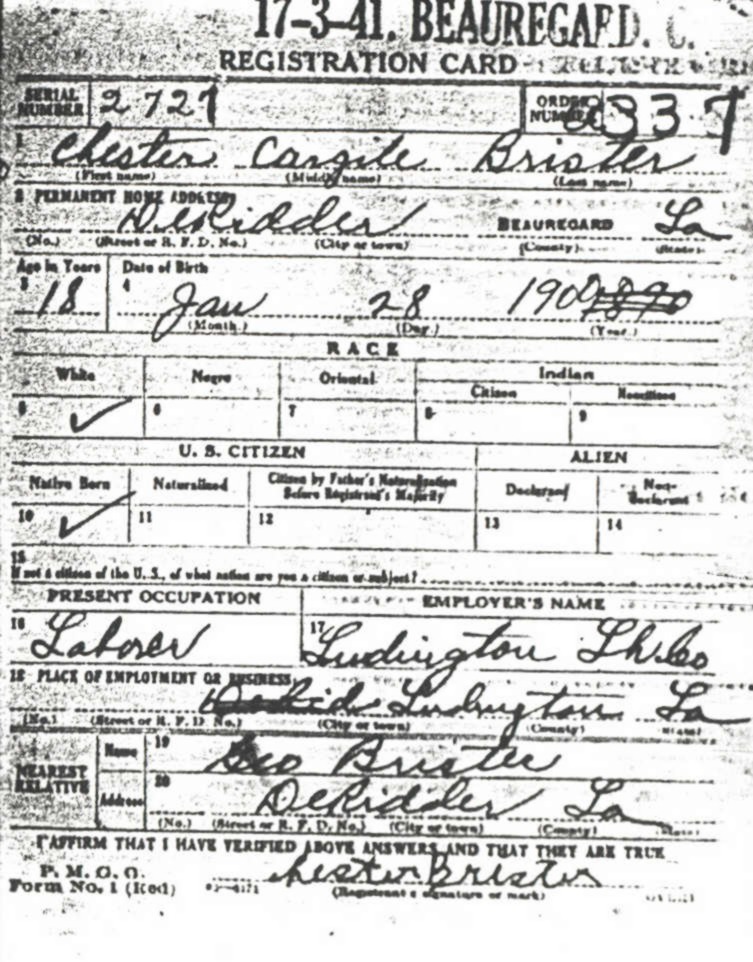 17-3-41. BEAUREGARD. C.
REGISTRATION CARD
SERIAL NUMBER 2727 ORDER NUMBER 2337
1 Chester Cargile Brister
(First name) (Middle name) (Last name)
2 PERMANENT HOME ADDRESS
DeRidder BEAUREGARD La
(No.) (Street or R. F. D. No.) (City or town) (County) (State)
Age in Years Date of Birth
3 18 4 Jan 28 1900
(Month.) (Day.) (Year.)
RACE
White Negro Oriental Indian
Citizen Noncitizen
5 ✓ 6 7 8 9
U. S. CITIZEN ALIEN
Native Born Naturalized Citizen by Father's Naturalization Before Registrant's Majority Declarant Non-Declarant
10 ✓ 11 12 13 14
15
If not a citizen of the U. S., of what nation are you a citizen or subject?
PRESENT OCCUPATION EMPLOYER'S NAME
16 Laborer 17 Ludington Lb. Co
18 PLACE OF EMPLOYMENT OR BUSINESS
Ludington La
(No.) (Street or R. F. D. No.) (City or town) (County) (State)
NEAREST RELATIVE Name 19 Geo Brister
Address 20 DeRidder La
(No.) (Street or R. F. D. No.) (City or town) (County) (State)
I AFFIRM THAT I HAVE VERIFIED ABOVE ANSWERS AND THAT THEY ARE TRUE
P. M. G. O.
Form No. 1 (Red) Chester Brister
(Registrant's signature or mark)